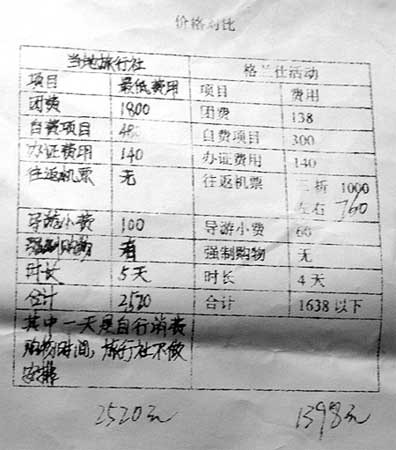 价格对比
当地旅行社 格兰仕活动
项目 最低费用 项目 费用
团费 1800 团费 138
自费项目 480 自费项目 300
办证费用 140 办证费用 140
往返机票 无 往返机票 折 1000
左右 760
导游小费 100 导游小费 60
强制购物 有 强制购物 无
时长 5天 时长 4天
合计 2520 合计 1638以下
其中一天是自行消费
购物时间,旅行社不做
安排
2520元 1398元